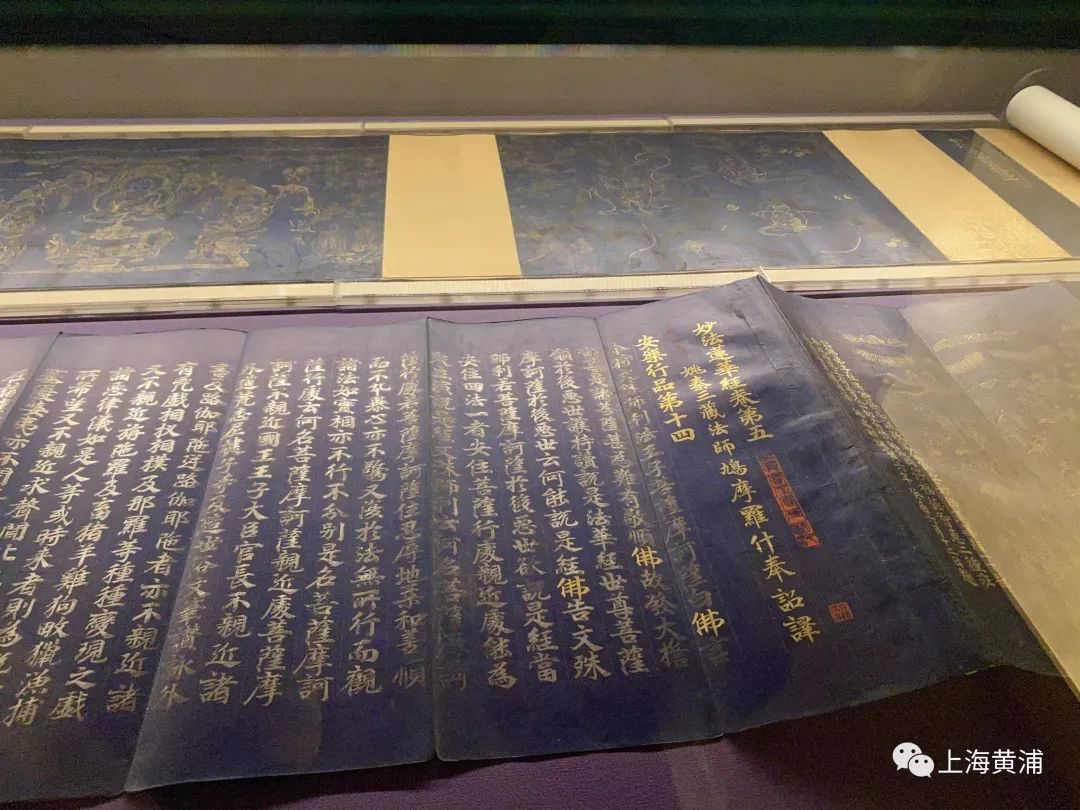 妙法蓮華經卷第五
姚秦三藏法師鳩摩羅什奉詔譯
安樂行品第十四
師利法王子菩薩摩訶薩白佛言
菩薩甚為難有敬順佛故發大
願於後惡世護持讀說是法華經世尊菩薩
摩訶薩於後惡世云何能說是經佛告文殊
師利若菩薩摩訶薩於後惡世欲說是經當
安住四法一者安住菩薩行處親近處能為
文殊師利云何名菩薩摩訶
薩行處若菩薩摩訶薩住忍辱地柔和善順
而不卒暴心亦不驚又復於法無所行而觀
諸法如實相亦不行不分別是名菩薩摩訶
薩行處云何名菩薩摩訶薩親近處菩薩摩
訶薩不親近國王王子大臣官長不親近諸
外道梵志尼揵子等及造世俗文筆讚詠外
書及路伽耶陀逆路伽耶陀者亦不親近諸
有兇戲相扠相撲及那羅等種種變現之戲
又不親近旃陀羅及畜猪羊雞狗畋獵漁捕
諸惡律儀如是人等或時來者則為
又不親近求聲聞比
上海黄浦